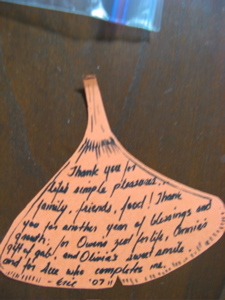 Thank you for
life's simple pleasures...
family, friends, food! Thank
you for another year of blessings and
growth; for Owens zest for life, Annie's
gift of gab!, and Olivia's sweet smile
and for Alee who completes me...
- Eric '07